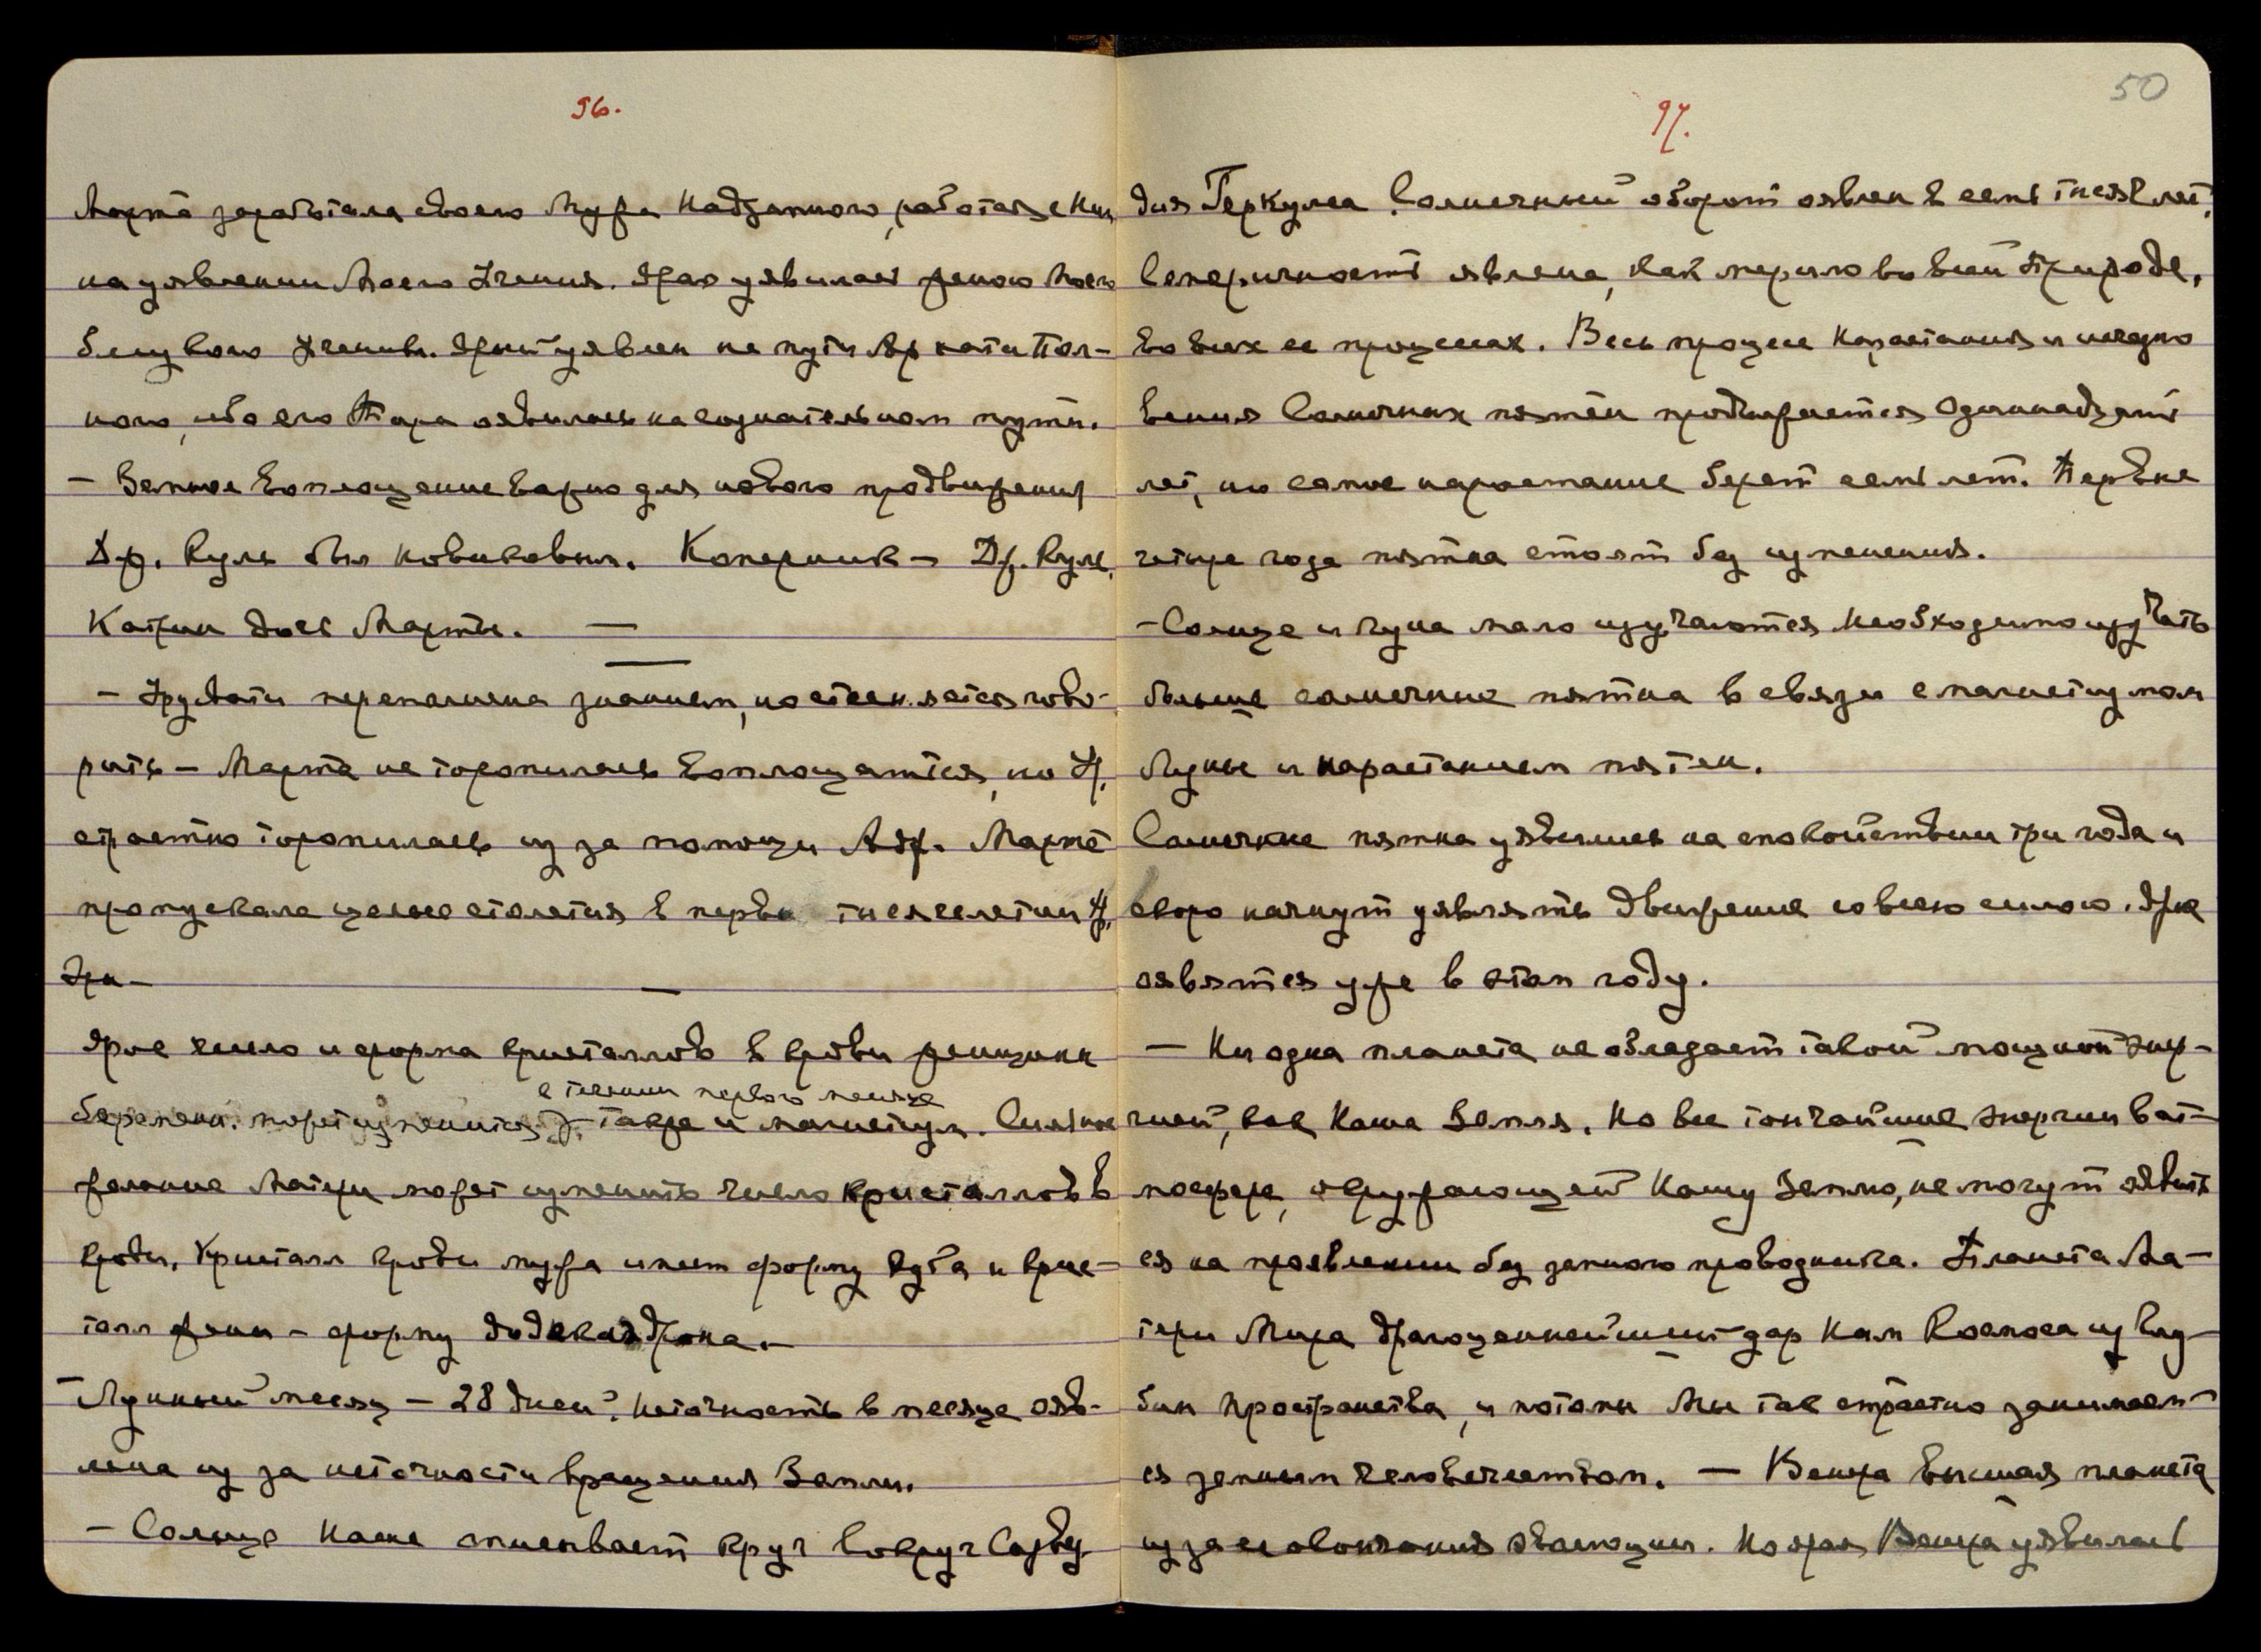 96.
Марта заработала своего Мужа Надземного, работая с Ним
на уявлении Моего Учения. Яро уявилась женою Моего
близкого Ученика. Ярый уявлен на пути Ар хата Пол-
ного, ибо его Пара оявилась на сознательном пути.
– Земное воплощение важно для нового продвижения
Др. Куль был Новиковым. Коперник – Дж. Куль,
Катрин дочь Марты. —
– Урусвати переполнена знанием, но стесняется гово-
рить – Марта не торопилась воплощаться, но У.
страстно торопилась из за помощи Адж. Марта
пропускала целые столетия в первых тысячелетии У.
Эры –
Ярое число и форма кристаллов в крови женщины
в течении первого месяца
беремен. может измениться, также и магнетизм. Сильное
желание Матери может изменить число кристаллов в
крови. Кристалл крови мужа имеет форму куба и крис-
талл жены – форму додекаэдрона. –
– Лунный месяц – 28 дней. Неточность в месяце ояв-
лена из за неточности вращения Земли.
– Солнце Наше описывает круг вокруг Созвез-
50
97.
дия Геркулеса. Солнечный оборот оявлен в семь тысяч лет.
Семеричность явлена, как мерило во всей Природе,
во всех ее процессах. Весь процесс Нарастания и исчезно
вения Солнечных пятен продолжается Одиннадцать
лет, но самое нарастание берет семь лет. Первые
четыре года пятна стоят без изменения.
– Солнце и Луна мало изучаются. Необходимо изучать
больше солнечные пятна в связи с магнетизмом
Луны и нарастанием пятен.
Солнечные пятна уявились на спокойствии три года и
скоро начнут уявлять движение со всею силою. Яро
оявятся уже в этом году.
– Ни одна планета не обладает такой мощной энер-
гией, как Наша Земля. Но все тончайшие энергии в ат-
мосфере, окружающей Нашу Землю, не могут оявить
ся на проявлении без земного проводника. Планета Ма-
тери Мира драгоценнейший дар Нам Космоса из Глу-
бин Пространства, и потому Мы так страстно занимаем-
ся земным человечеством. – Венера высшая планета
из за ее окончания эволюции. Но ярая Венера уявилась